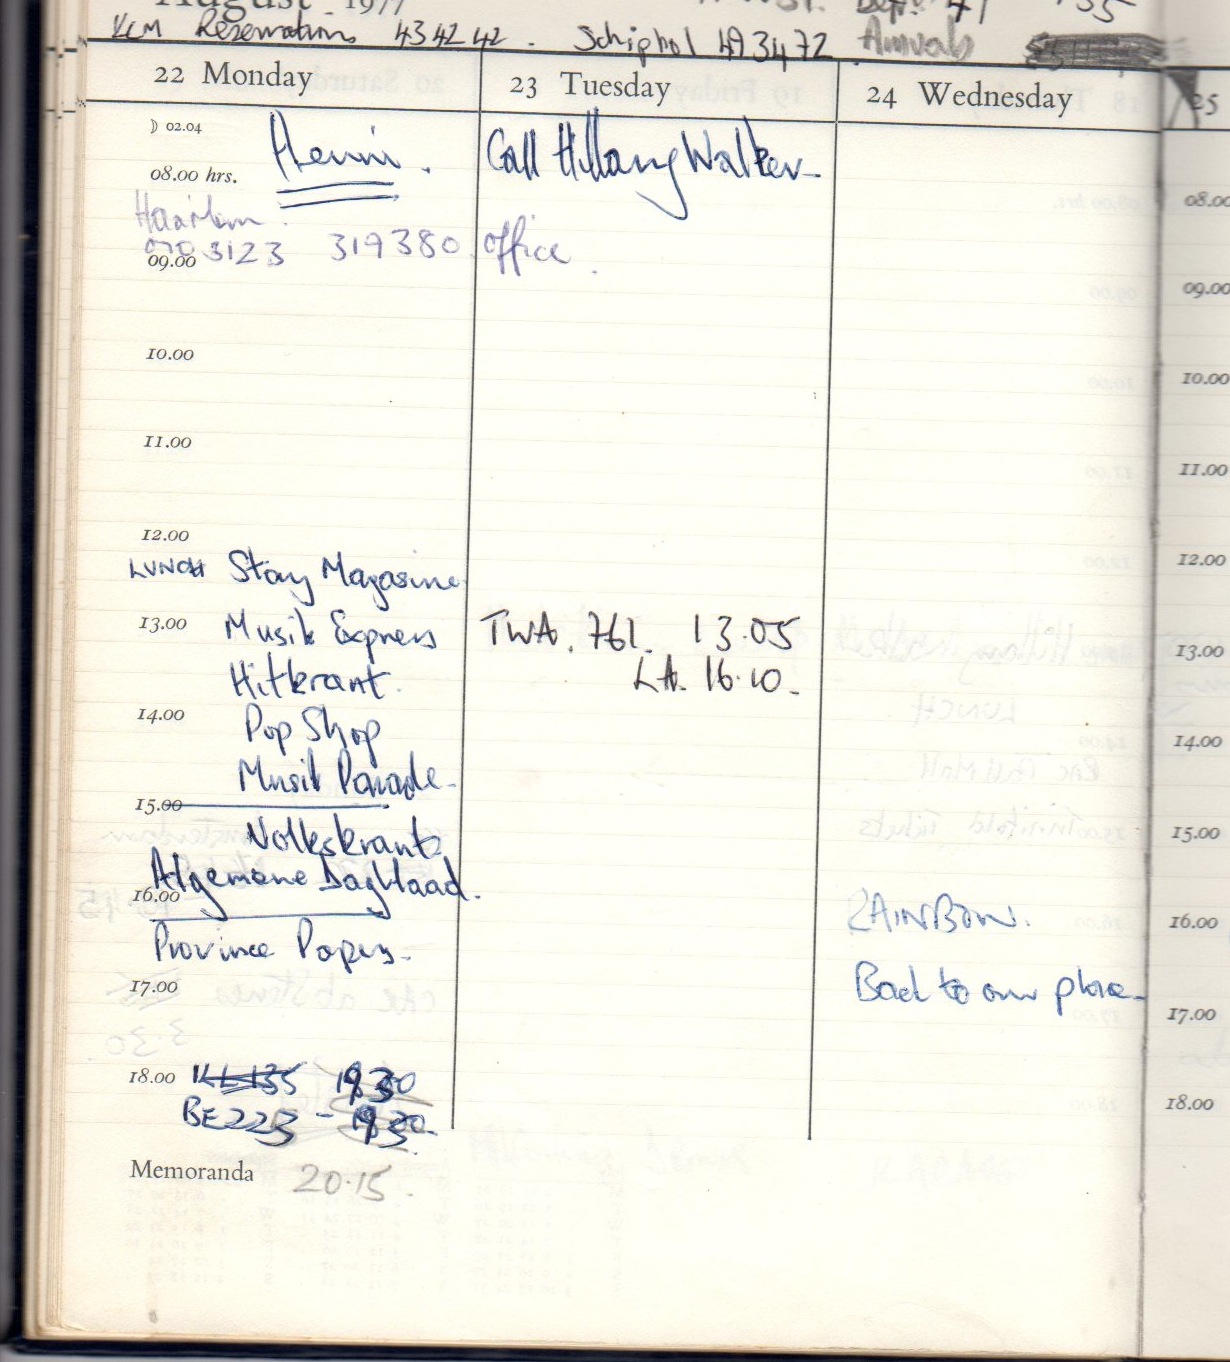 August 1977
KLM Reservations 434242. Schiphol 493472 Arrivals
22 Monday
☽ 02.04
08.00 hrs.
Haarlem
070 3123 319380 Office
09.00
10.00
11.00
12.00
LUNCH Story Magasine
13.00 Musik Express
Hitkrant.
14.00
Pop Shop
Musik Parade
15.00
Volkskrant
Algemene Dagblaad.
16.00
Province Papers.
17.00
18.00 KL135 1930
BE225 -
Memoranda 20.15.
23 Tuesday
Call Hillary Walker
TWA. 761. 13.05
LA. 16.10
24 Wednesday
RAINBOW.
Back to our place
25
08.00
09.00
10.00
11.00
12.00
13.00
14.00
15.00
16.00
17.00
18.00